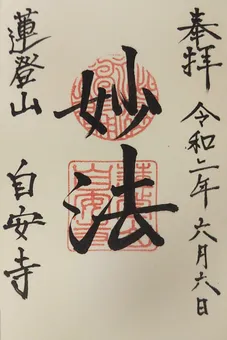 奉拝 令和二年六月六日
妙法
蓮登山
自安寺